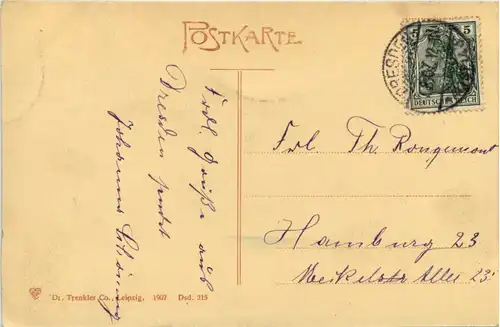 POSTKARTE
5
DEUTSCHES REICH
DRESDEN
Frdl. Grüße aus
Dresden sendet
Johannes
Frl. Th. Rongemont
Hamburg 23
Allee 23
Dr. Trenkler Co., Leipzig, 1907 Dsd. 215